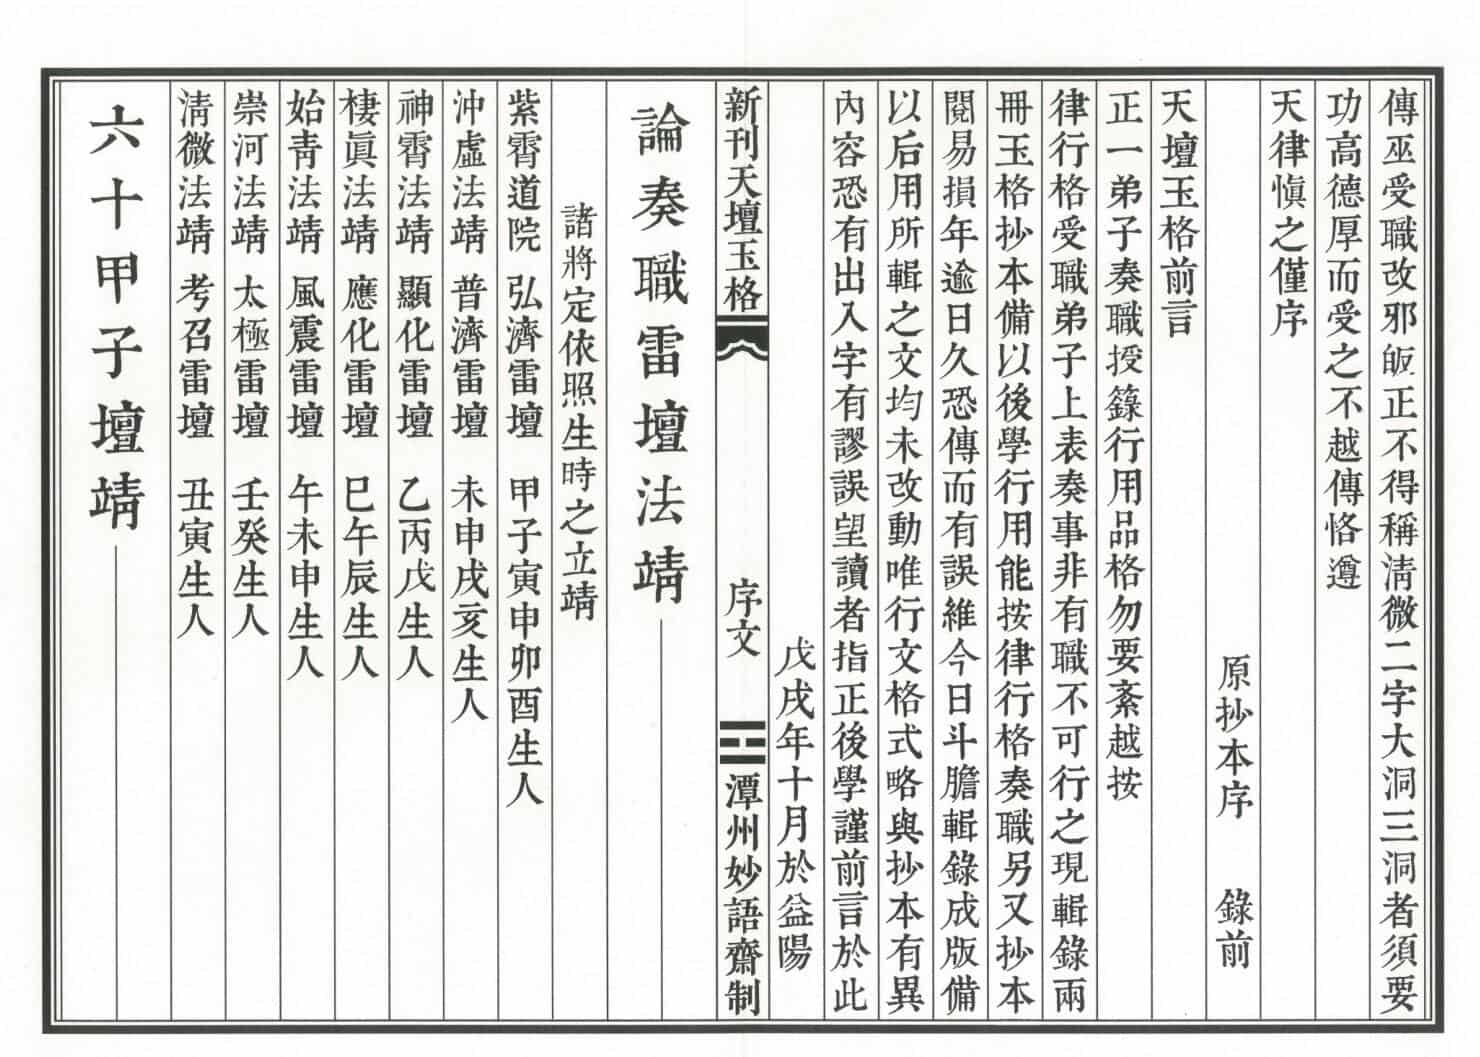 傳巫受職改邪皈正不得稱清微二字大洞三洞者須要
功高德厚而受之不越傳恪遵
天律慎之僅序
原抄本序　錄前
天壇玉格前言
正一弟子奏職授籙行用品格勿要紊越按
律行格受職弟子上表奏事非有職不可行之現輯錄兩
冊玉格抄本備以後學行用能按律行格奏職另又抄本
閱易損年逾日久恐傳而有誤維今日斗膽輯錄成版備
以后用所輯之文均未改動唯行文格式略與抄本有異
內容恐有出入字有謬誤望讀者指正後學謹前言於此
戊戌年十月於益陽
新刊天壇玉格　序文　潭州妙語齋制
論奏職雷壇法靖
諸將定依照生時之立靖
紫霄道院　弘濟雷壇　甲子寅申卯酉生人
沖虛法靖　普濟雷壇　未申戌亥生人
神霄法靖　顯化雷壇　乙丙戊生人
棲眞法靖　應化雷壇　巳午辰生人
始青法靖　風震雷壇　午未申生人
崇河法靖　太極雷壇　壬癸生人
清微法靖　考召雷壇　丑寅生人
六十甲子壇靖